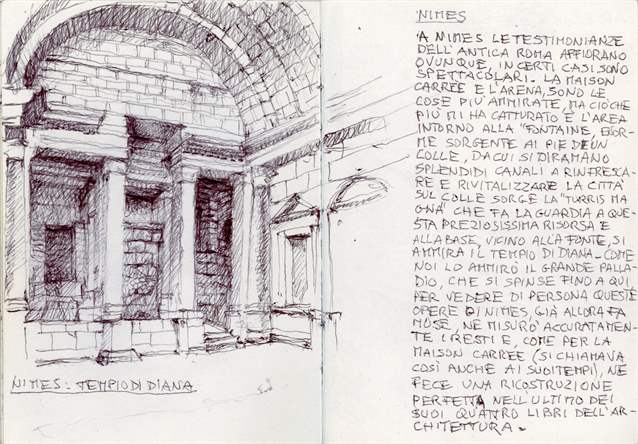 NIMES: TEMPIO DI DIANA
NIMES
A NIMES LE TESTIMONIANZE
DELL'ANTICA ROMA AFFIORANO
OVUNQUE, IN CERTI CASI SONO
SPETTACOLARI. LA MAISON
CARREE E L'ARENA, SONO LE
COSE PIU' AMMIRATE, MA CIO' CHE
PIU' MI HA CATTURATO E' L'AREA
INTORNO ALLA "FONTAINE, ENOR-
ME SORGENTE AI PIE DE UN
COLLE, DA CUI SI DIRAMANO
SPLENDIDI CANALI A RINFRESCA-
RE E RIVITALIZZARE LA CITTA'
SUL COLLE SORGE LA "TURRIS MA
GNA" CHE FA LA GUARDIA A QUE-
STA PREZIOSISSIMA RISORSA E
ALLA BASE, VICINO ALLA FONTE, SI
AMMIRA IL TEMPIO DI DIANA_ COME
NOI LO AMMIRO' IL GRANDE PALLA-
DIO, CHE SI SPINSE FINO A QUI
PER VEDERE DI PERSONA QUESTE
OPERE DI NIMES, GIA' ALLORA FA
MOSE, NE MISURO' ACCURATAMEN-
TE I RESTI E, COME PER LA
MAISON CARREE (SI CHIAMAVA
COSI' ANCHE AI SUOI TEMPI), NE
FECE UNA RICOSTRUZIONE
PERFETTA NELL'ULTIMO DEI
SUOI QUATTRO LIBRI DELL'AR-
CHITETTURA.